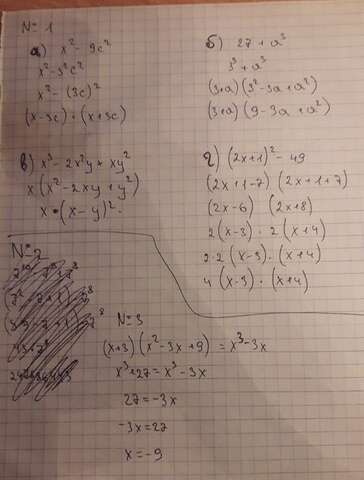 N=1
а) x² - 9c²
x² - 3²c²
x² - (3c)²
(x-3c) · (x+3c)
б) 27 + a³
3³ + a³
(3+a)(3² - 3a + a²)
(3+a)(9 - 3a + a²)
в) x³ - 2x²y + xy²
x(x² - 2xy + y²)
x · (x-y)².
г) (2x+1)² - 49
(2x+1-7)(2x+1+7)
(2x-6)(2x+8)
2(x-3) · 2(x+4)
2·2(x-3) · (x+4)
4(x-3) · (x+4)
N=2
N=3
(x+3)(x² - 3x + 9) = x³ - 3x
x³ + 27 = x³ - 3x
27 = -3x
-3x = 27
x = -9